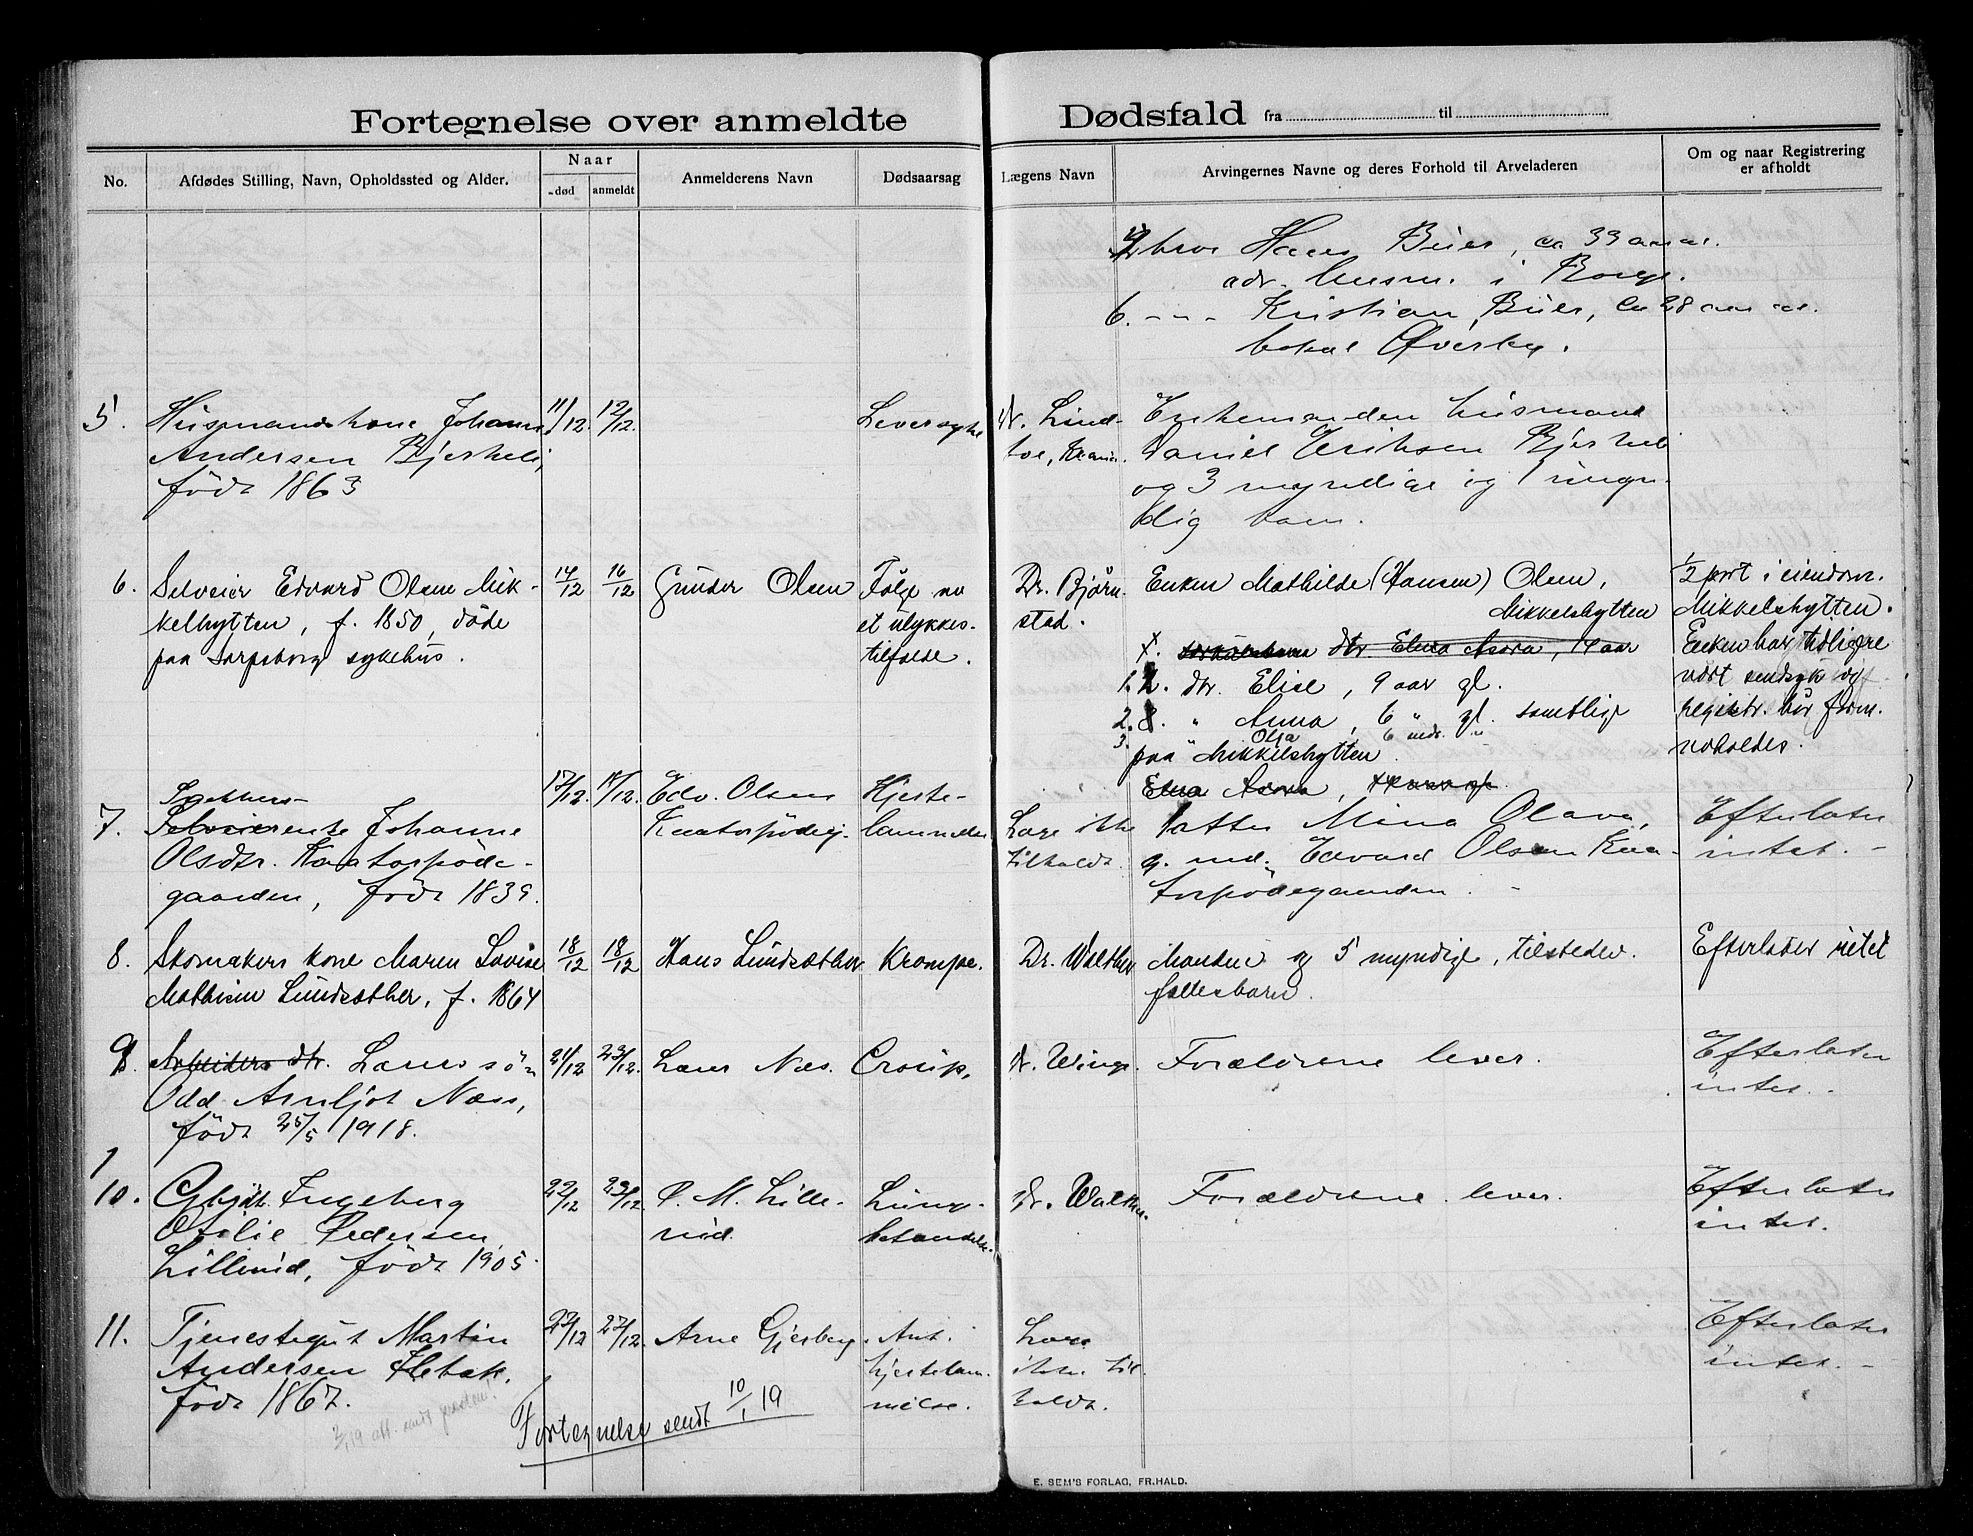 Fortegnelse over anmeldte Dødsfald fra til
No.
Afdødes Stilling, Navn, Opholdssted og Alder.
Naar
død
anmeldt
Anmelderens Navn
Dødsaarsag
Lægens Navn
Arvingernes Navne og deres Forhold til Arveladeren
Om og naar Registrering
er afholdt
bror Hans Buer, ca 39 aar
adr. i Borge.
6. - " - Kristian Buer, ca 28 aar
lokal Øverby.
5.
Husmandskone Johanne
Andersen Bjerkeli,
født 1863
11/12.
12/12.
Leversyke
dr. Lind-
toe, Kr.ania.
Enkemanden husmand
Daniel Eriksen Bjerkeli
og 3 myndige og 1 umyn-
dig barn.
6.
Selveier Edvard Olsen Mik-
kelhytten, f. 1850, døde
paa Sarpsborg sykehus.
14/12
16/12
Gunder Olsen
Følge av
et ulykkes-
tilfælde.
Dr. Bjørn-
stad.
Enken Mathilde (Hansen) Olsen,
Mikkelshytten
dtr. Elna Asora, 14 aar
1. dtr. Elise, 9 aar gl.
2. " Anna, 6 " gl. samtlige
3. " Olga 6 mdr. "
paa Mikkelshytten
Elna Asora,
1/2 part i eiendom.
Mikkelshytten.
Enken har tidligere
vært sindsyk og
registr. bør frem-
holdes.
7.
Snekkers-
Selveierenke Johanne
Olsdtr. Kaatorpøde-
gaarden, født 1839.
17/12.
17/12.
Edv. Olsen
Kaatorpødeg.
Hjerte-
lammelse
Læge ikke
tilkaldt.
Datter Mina Olava,
g. md. Edvard Olsen Kaa-
torpødegaarden. -
Efterlater
intet. -
8.
Skomakers kone Maren Lovise
Mathisen Lundsæther, f. 1864
18/12
18/12
Hans Lundsæther
Krampe.
Dr. Walther
Manden og 5 myndige, tilstedev.
fællesbarn.
Efterlater intet
9.
Arbeiders dtr. Lars søn
Odd Arnljot Næss,
født 25/5 1918.
21/12
23/12.
Lars Næs.
Croup,
dr. Winge.
Forældrene lever.
Efterlater
intet. -
10.
Gbrdt. Ingeborg
Otilie Pedersen
Lillerud, født 1905.
22/12
23/12.
P. M. Lille-
rud.
Lunge-
betændelse.
dr. Walther.
Forældrene lever.
Efterlater
intet.
11.
Tjenestegut Martin
Andersen Flebæk,
født 1867.
22/12
27/12.
Arne Gjesberg.
Ant.
hjertelam-
melse.
Læge
ikke til-
kaldt.
Efterlater
intet. -
Fortegnelse sendt 10/1 19
E. SEM'S FORLAG, FR.HALD.